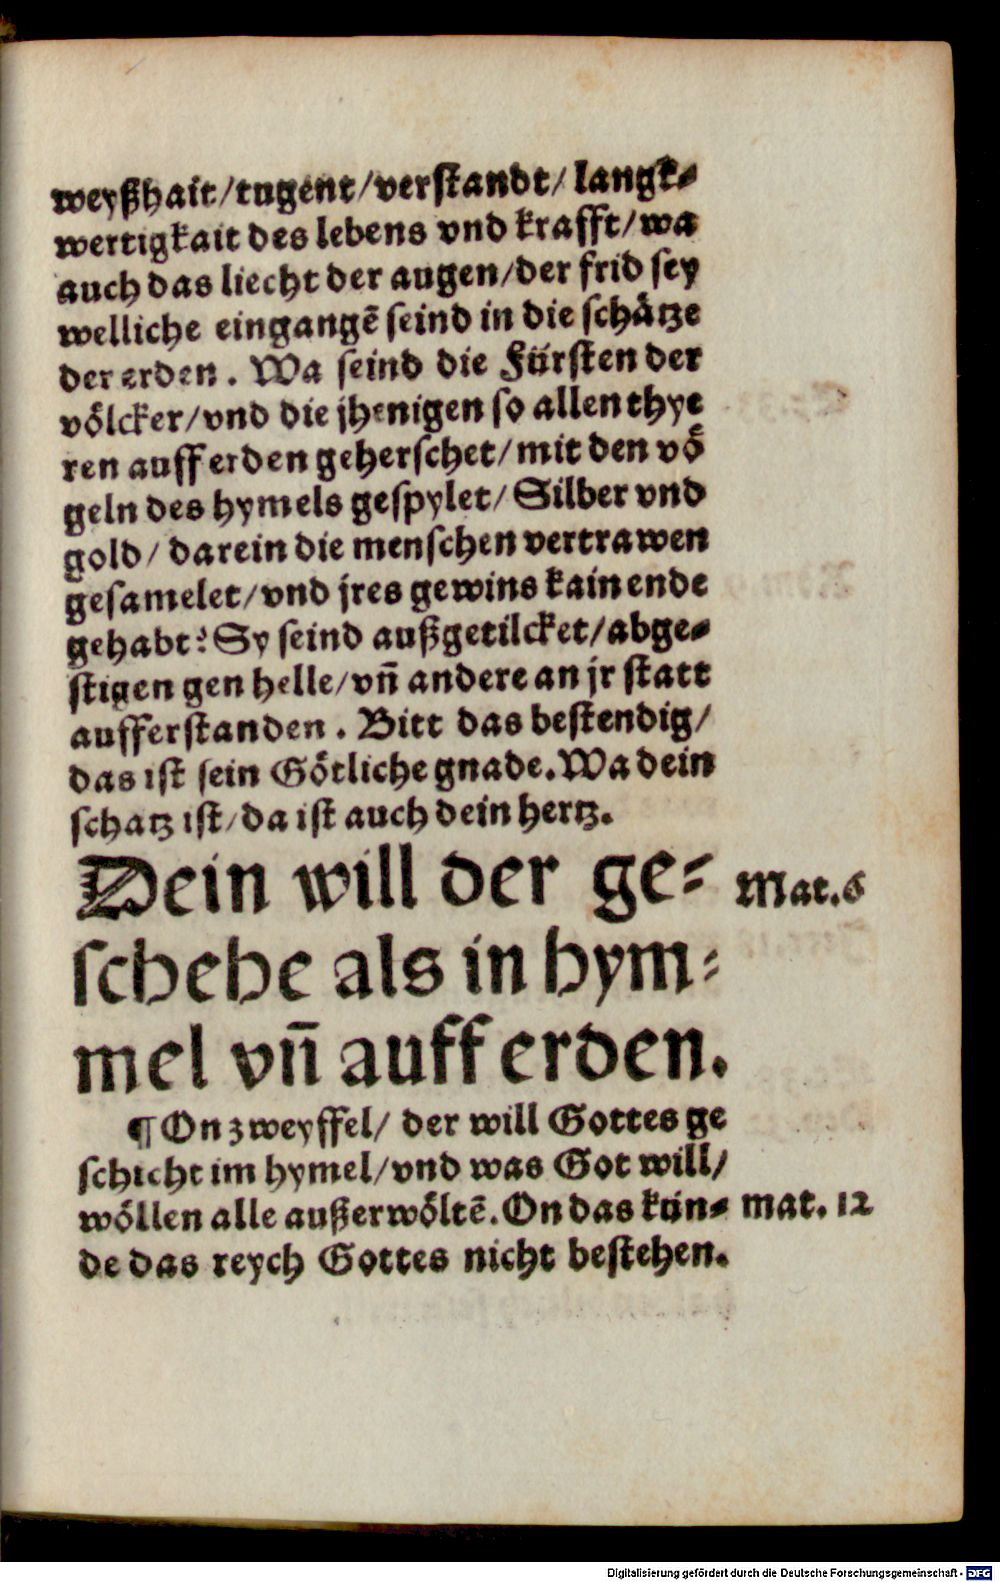 weyßhait/tugent/verstandt/langk⸗
wertigkait des lebens vnd krafft/wa
auch das liecht der augen/der frid sey
welliche eingangē seind in die schätze
der erden. Wa seind die Fürsten der
völcker/vnd die jhenigen so allen thye
ren auff erden geherschet/mit den vö
geln des hymels gespylet/Silber vnd
gold/darein die menschen vertrawen
gesamelet/vnd jres gewins kain ende
gehabt? Sy seind außgetilcket/abge⸗
stigen gen helle/vñ andere an jr statt
aufferstanden. Bitt das bestendig/
das ist sein Götliche gnade. Wa dein
schatz ist/da ist auch dein hertz.
Dein will der ge⸗ Mat.6
schehe als in hym⸗
mel vñ auff erden.
¶ On zweyffel/ der will Gottes ge
schicht im hymel/vnd was Got will/
wöllen alle außerwöltē. On das kün⸗ mat. 12
de das reych Gottes nicht bestehen.
Digitalisierung gefördert durch die Deutsche Forschungsgemeinschaft - DFG